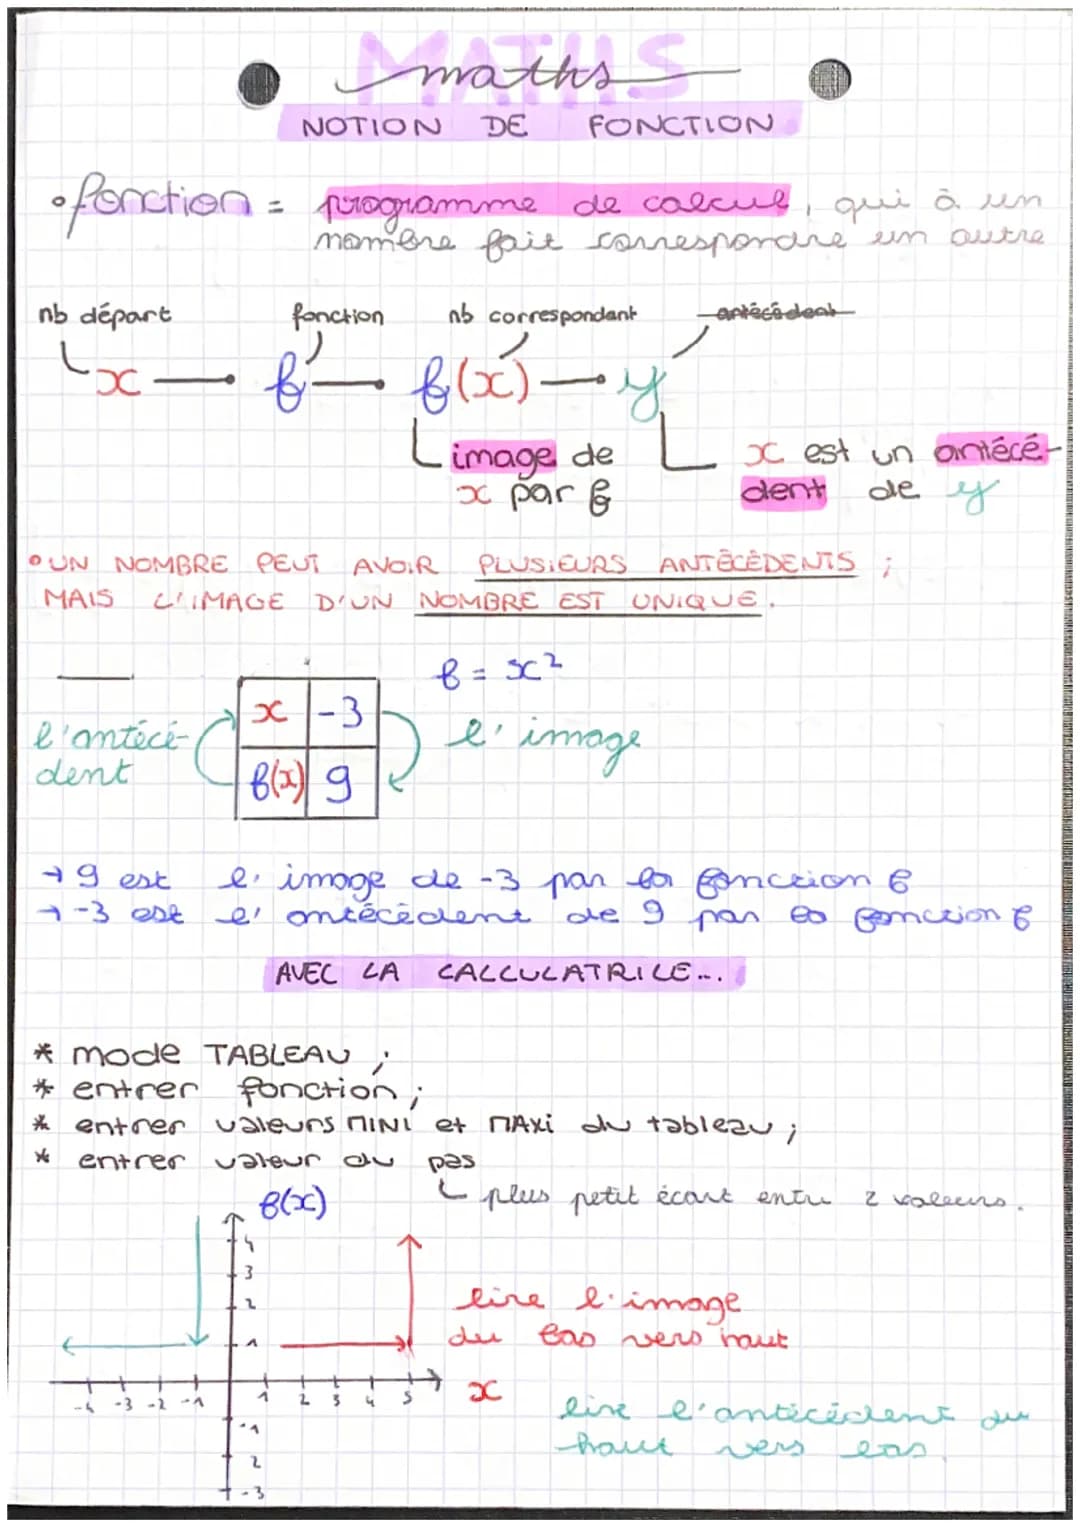 MATHS
maths
NOTION DE FONCTION
• fonction = programme de calcul, qui à un
nombre fait correspondre un autre
nb départ fonction nb correspondant antécédent
x f f(x) y
image de
x par f
x est un antécé-
dent de y
• UN NOMBRE PEUT AVOIR PLUSIEURS ANTÉCÉDENTS ;
MAIS L'IMAGE D'UN NOMBRE EST UNIQUE.
f = x²
x -3
f(x) 9
l'antécé-
dent
l'image
→ 9 est l'image de -3 par la fonction f
→ -3 est l'antécédent de 9 par la fonction f
AVEC LA CALCULATRICE...
* mode TABLEAU ;
* entrer fonction ;
* entrer valeurs MINI et MAXi du tableau ;
* entrer valeur du pas
plus petit écart entre 2 valeurs.
f(x)
4
3
2
1
-4 -3 -2 -1 1 2 3 4 5
x
-1
2
-3
lire l'image
du bas vers haut
lire l'antécédent du
haut vers bas.